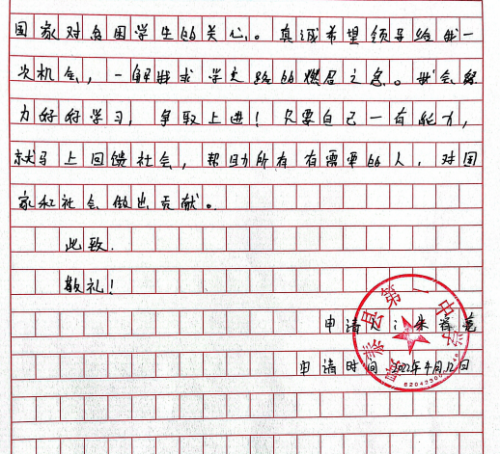 国家对贫困学生的关心。真诚希望领导给我一
次机会，一解我求学无路的燃眉之急。我会努
力好好学习，争取上进！只要自己一有能力，
就马上回馈社会，帮助所有有需要的人，对国
家和社会做出贡献。
此致
敬礼！
申请人：
申请时间 2022年4月12日
县第一中学